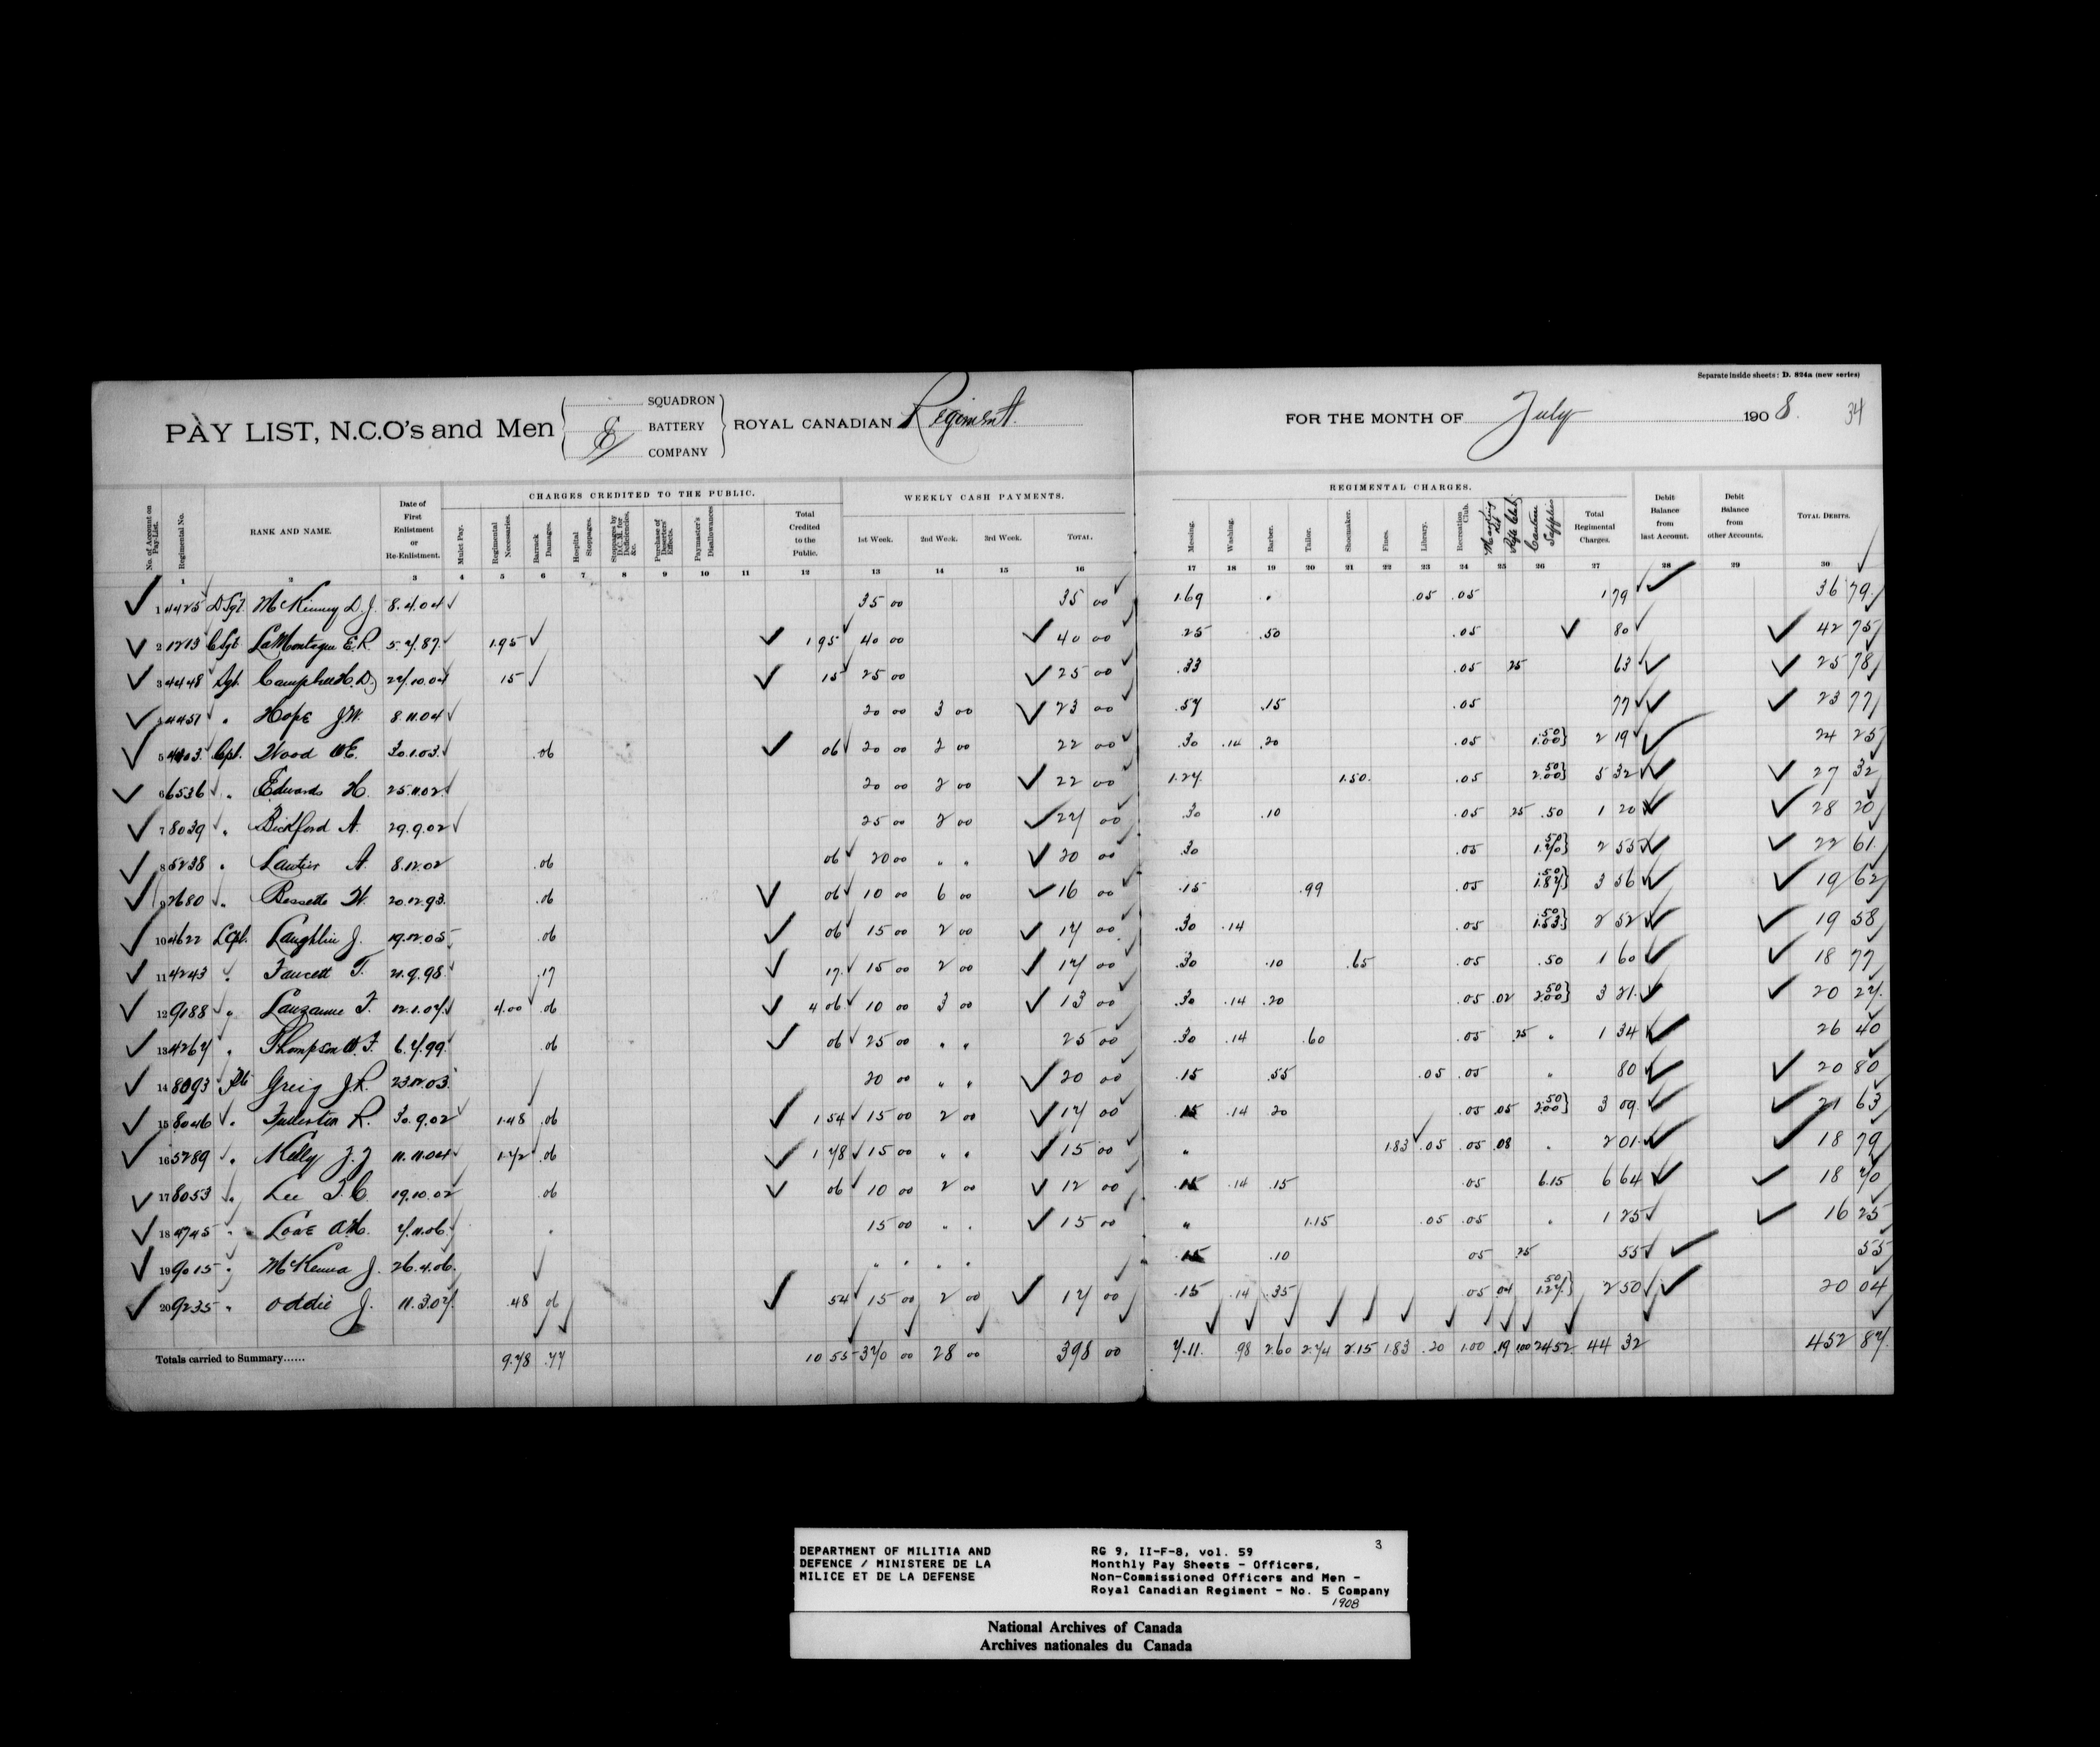 Separate inside sheets: D. 824a (new series)
PAY LIST, N.C.O's and Men E SQUADRON BATTERY COMPANY ROYAL CANADIAN Regiment. FOR THE MONTH OF July 1908. 34
CHARGES CREDITED TO THE PUBLIC. WEEKLY CASH PAYMENTS. REGIMENTAL CHARGES.
No. of Account on Pay-List. Regimental No. RANK AND NAME. Date of First Enlistment or Re-Enlistment. Mulct Pay. Regimental Necessaries. Barrack Damages. Hospital Stoppages. Stoppages by D.C.M. for Deficiencies, &c. Purchase of Deserters' Effects. Paymaster's Disallowances Total Credited to the Public. 1st Week. 2nd Week. 3rd Week. TOTAL. Messing. Washing. Barber. Tailor. Shoemaker. Fines. Library. Recreation Club. Rifle Club Canteen Supplies Total Regimental Charges. Debit Balance from last Account. Debit Balance from other Accounts. TOTAL DEBITS.
1 2 3 4 5 6 7 8 9 10 11 12 13 14 15 16 17 18 19 20 21 22 23 24 25 26 27 28 29 30
1 4425 DSgt McKinney D.J. 8.4.04 35 00 35 00 1.69 .05 .05 1 79 36 79
2 1213 CSgt LaMontagne E.R. 5.7.87. 1.95 1 95 40 00 40 00 .25 .50 .05 80 42 75
3 4448 Sgt. Campbell H.D. 27.10.04 15 15 25 00 25 00 .33 .05 25 63 25 78
4 4451 " Hope J.W. 8.11.04 20 00 3 00 23 00 .57 .15 .05 77 23 77
5 4403 Cpl. Wood W.E. 30.1.03. .06 06 20 00 2 00 22 00 .30 .14 .20 .05 .50 1.00} 2 19 24 25
6 6536 " Edwards H. 25.11.02. 20 00 2 00 22 00 1.27. 1.50. .05 .50 2.00} 5 32 27 32
7 8039 " Bickford A. 29.9.02 25 00 2 00 27 00 .30 .10 .05 25 .50 1 20 28 20
8 5238 " Lautier A. 8.12.02 .06 06 20 00 " " 20 00 .30 .05 .50 1.70} 2 55 22 61
9 2680 " Bessette W. 20.12.93. .06 06 10 00 6 00 16 00 .15 .99 .05 .50 1.87} 3 56 19 62
10 4622 LCpl. Laughlin J. 19.12.05 .06 06 15 00 2 00 17 00 .30 .14 .05 .50 1.53} 2 52 19 58
11 4243 " Fawcett T. 21.9.98. .17 17. 15 00 2 00 17 00 .30 .10 .65 .05 .50 1 60 18 77
12 9188 " Lauzanne F. 12.1.07. 4.00 .06 4 06 10 00 3 00 13 00 .30 .14 .20 .05 .02 .50 2.00} 3 21 20 27
13 4267 " Thompson W.F. 6.7.99. .06 06 25 00 " " 25 00 .30 .14 .60 .05 25 " 1 34 26 40
14 8093 Pte Greig J.R. 23.12.03. 20 00 " " 20 00 .15 .55 .05 .05 " 80 20 80
15 8046 " Fullerton R. 30.9.02 1.48 .06 1 54 15 00 2 00 17 00 .15 .14 .20 .05 .05 .50 2.00} 3 09 21 63
16 5289 " Kelly J.J. 11.11.04 1.72 .06 1 78 15 00 " " 15 00 " 1.83 .05 .05 .08 " 2 01 18 79
17 8053 " Lee T.C. 19.10.02 .06 06 10 00 2 00 12 00 .15 .14 .15 .05 6.15 6 64 18 70
18 9745 " Love A.H. 7.11.06. 15 00 " " 15 00 " 1.15 .05 .05 " 1 25 16 25
19 9015 " McKenna J. 26.4.06. " " " " .15 .10 05 25 55 55
20 9235 " Oddie J. 11.3.07. .48 06 54 15 00 2 00 17 00 .15 .14 .35 .05 .04 .50 1.27.} 2 50 20 04
Totals carried to Summary...... 9.78 .77 10 55 370 00 28 00 398 00 7.11. .98 2.60 2.74 2.15 1.83 .20 1.00 .19 1.00 24.52 44 32 452 87.
DEPARTMENT OF MILITIA AND
DEFENCE / MINISTERE DE LA
MILICE ET DE LA DEFENSE
RG 9, II-F-8, vol. 59 3
Monthly Pay Sheets - Officers,
Non-Commissioned Officers and Men -
Royal Canadian Regiment - No. 5 Company
1908
National Archives of Canada
Archives nationales du Canada